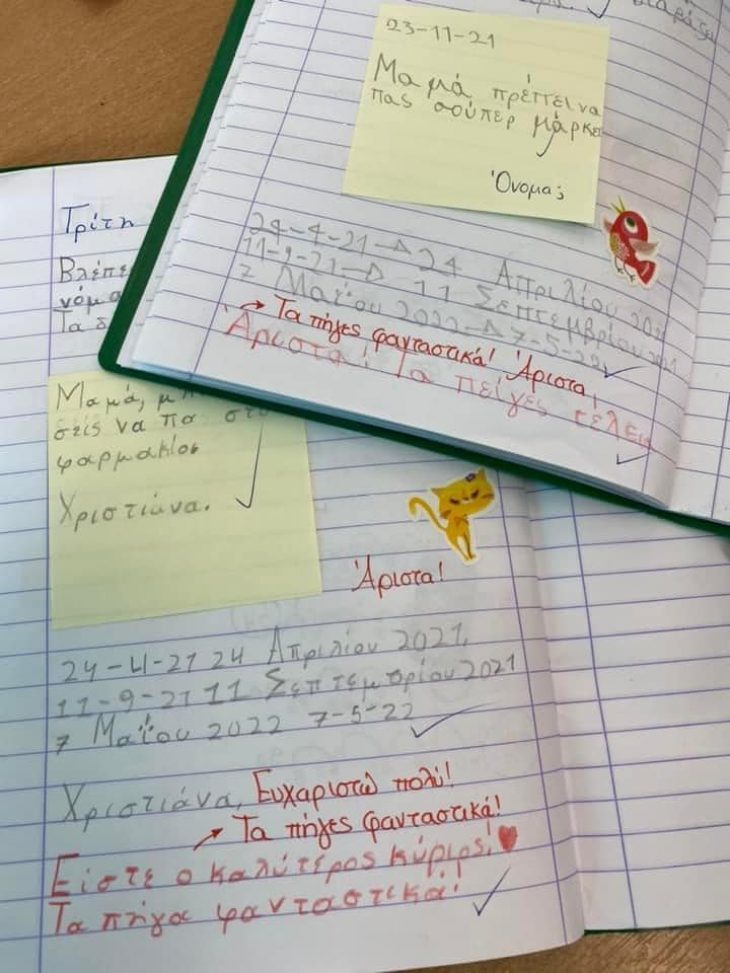 23-11-21
Μαμά πρέπει να
πας σούπερ μάρκετ
Όνομα;
24-4-21-Δ 24 Απριλίου 2021
11-9-21-Δ 11 Σεπτεμβρίου 2021
7 Μαΐου 2022-Δ 7-5-22
→ Τα πήγες φανταστικά! Άριστα,
Άριστα! Τα πείγες τέλεια
Τρίτη
Βλέπε
νόμα
Τα δ
Μαμά, μπ
στίς να πα στο
φαρμακίοσ
Χριστιάνα.
Άριστα!
24-4-21 24 Απριλίου 2021,
11-9-21 11 Σεπτεμβρίου 2021
7 Μαΐου 2022 7-5-22
Χριστιάνα, Ευχαριστώ πολύ!
→ Τα πήγες φανταστικά!
Είστε ο καλύτερος κύριος!
Τα πήγα φανταστικά!